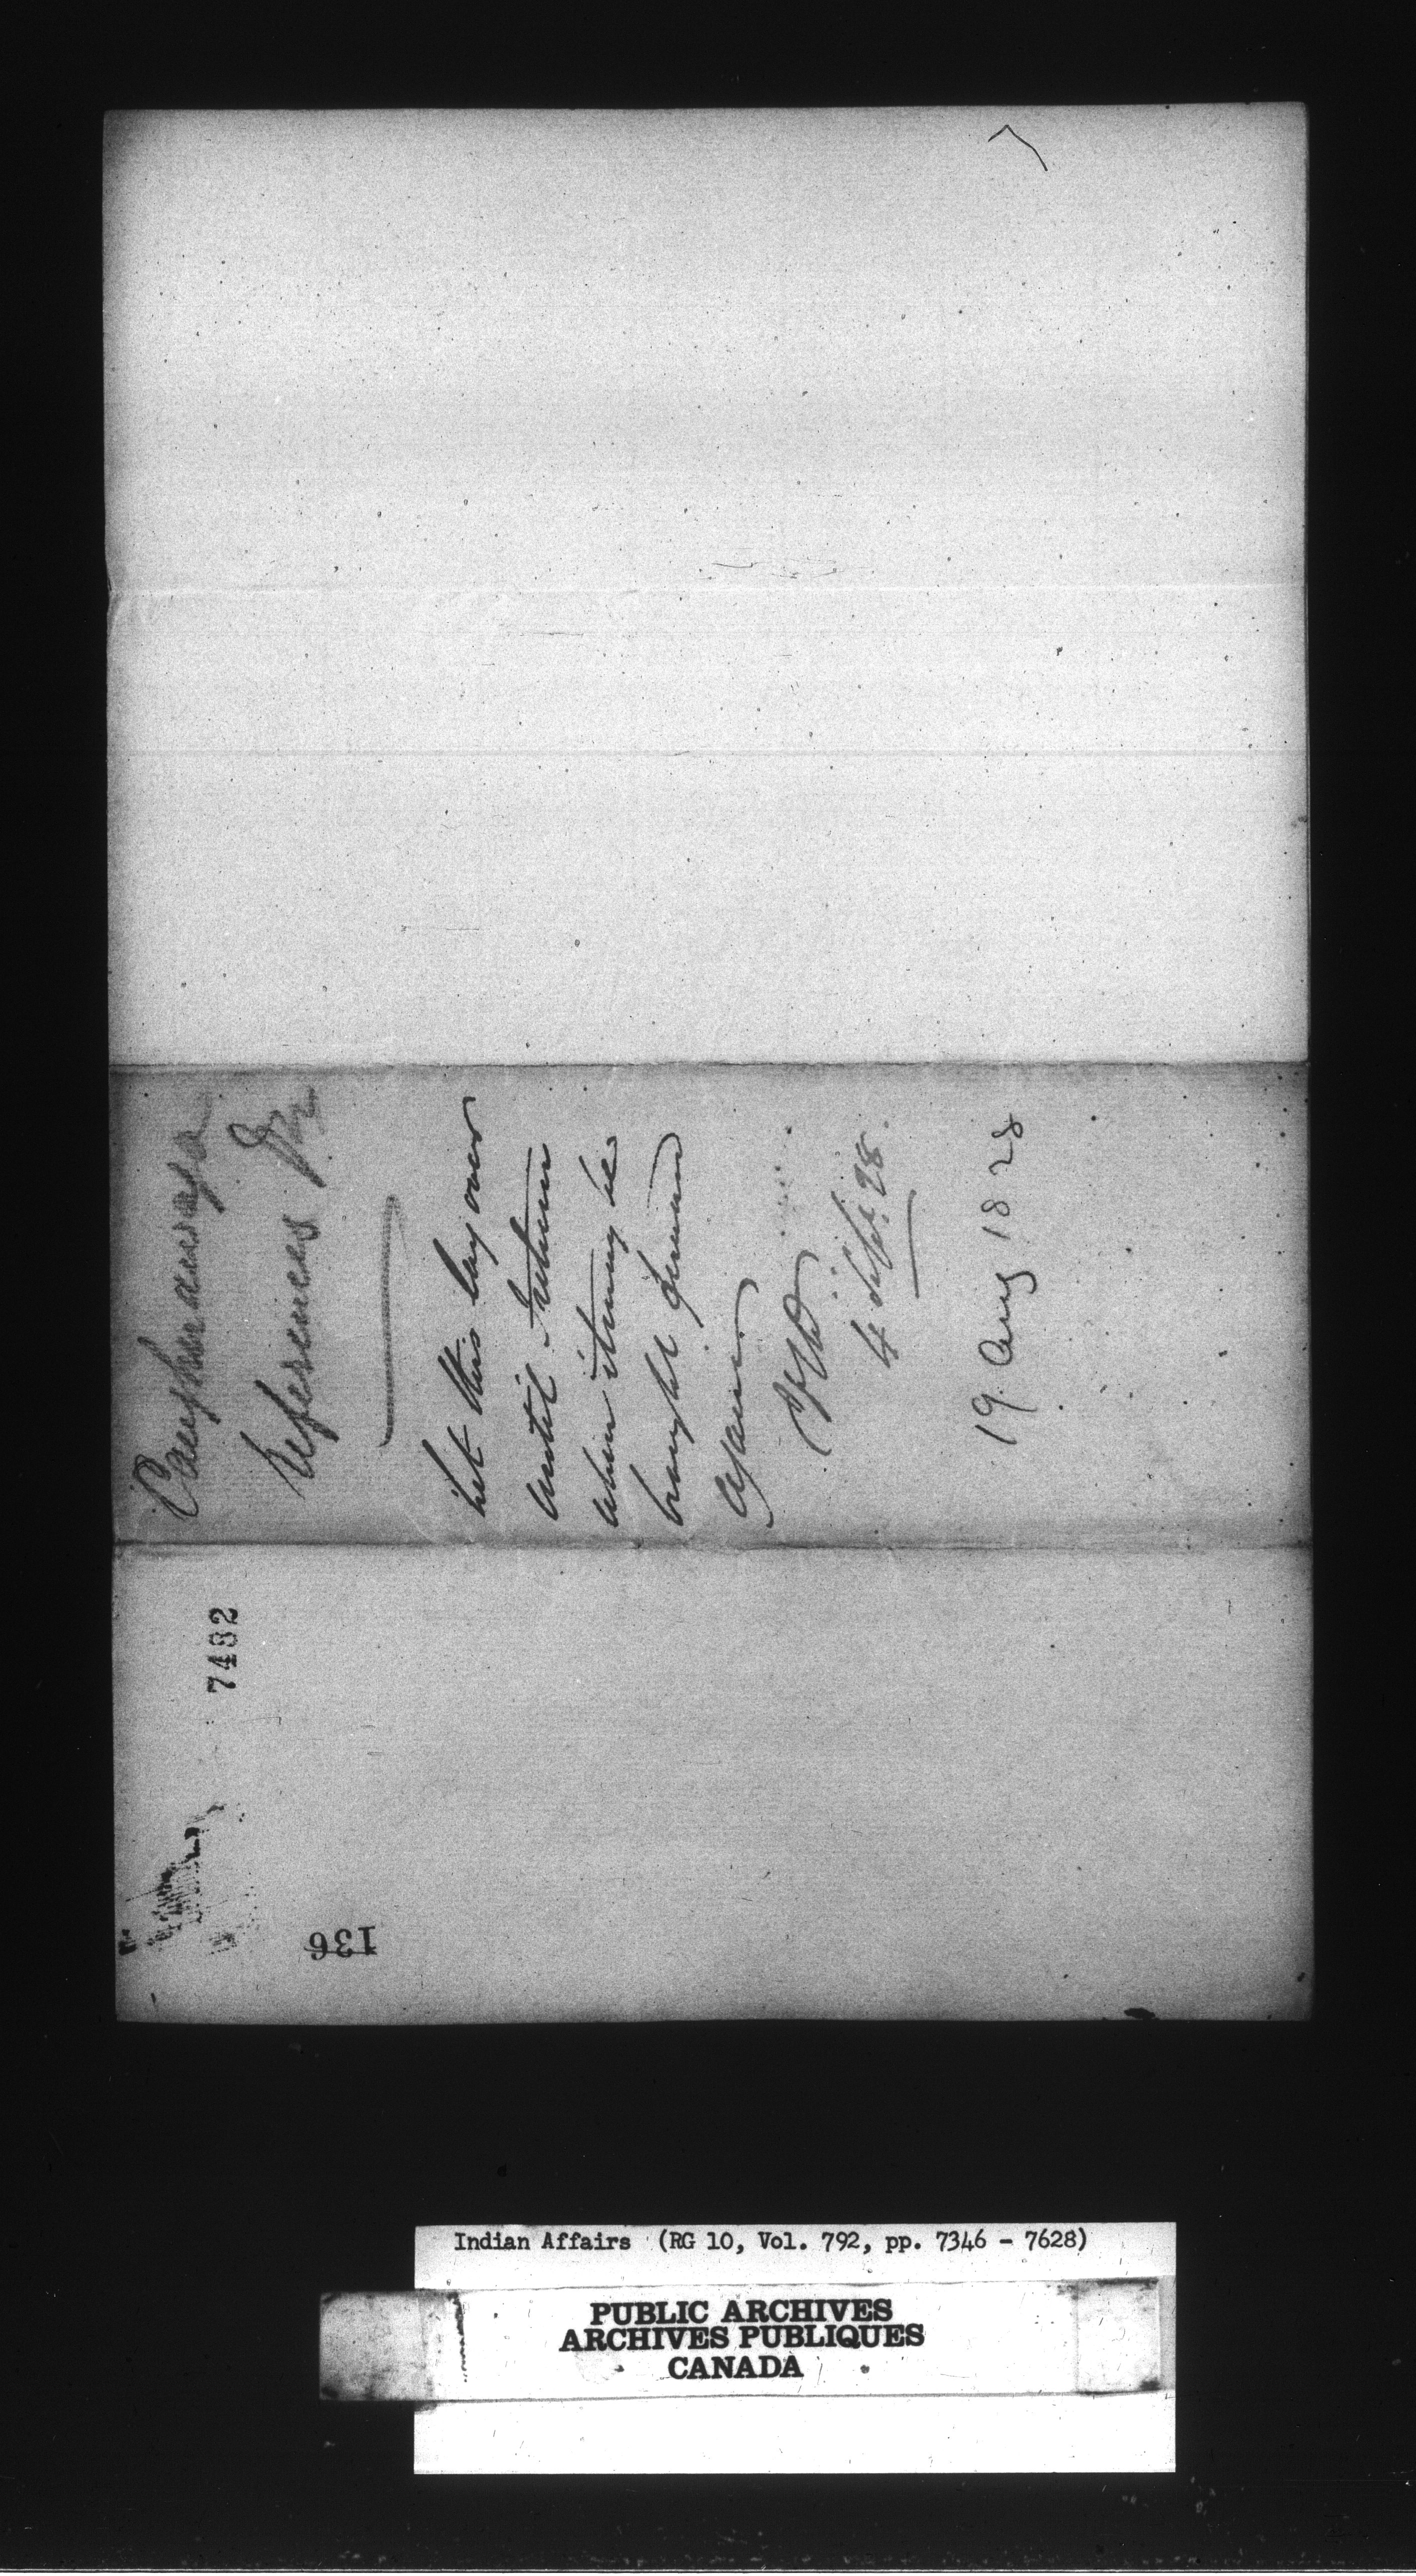 Caughnawaga
References
Let this lay over
until I return
when it may be
brought forward
again.
4 Sept. 28.
19 Aug 1828
7482
136
Indian Affairs (RG 10, Vol. 792, pp. 7346 - 7628)
PUBLIC ARCHIVES
ARCHIVES PUBLIQUES
CANADA